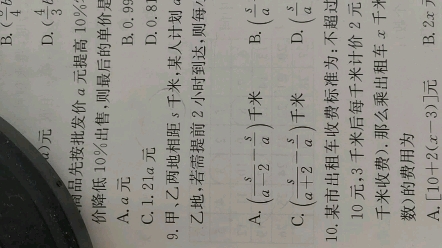 D. (4/3
)元
商品先按批发价 a 元提高 10%
价降低 10%出售,则最后的单价是
A. a 元 B. 0.99
C. 1.21a 元 D. 0.81
9. 甲、乙两地相距 s 千米,某人计划
乙地,若需提前 2 小时到达,则每
A. (s/(a-2) - s/a)千米 B. (s/a
C. (s/(a+2) - s/a)千米 D. (s/a
10. 某市出租车收费标准为:不超过
10 元,3 千米后每千米计价 2 元
千米收费),那么乘出租车 x 千米
数)的费用为
A. [10+2(x-3)]元 B. 2x